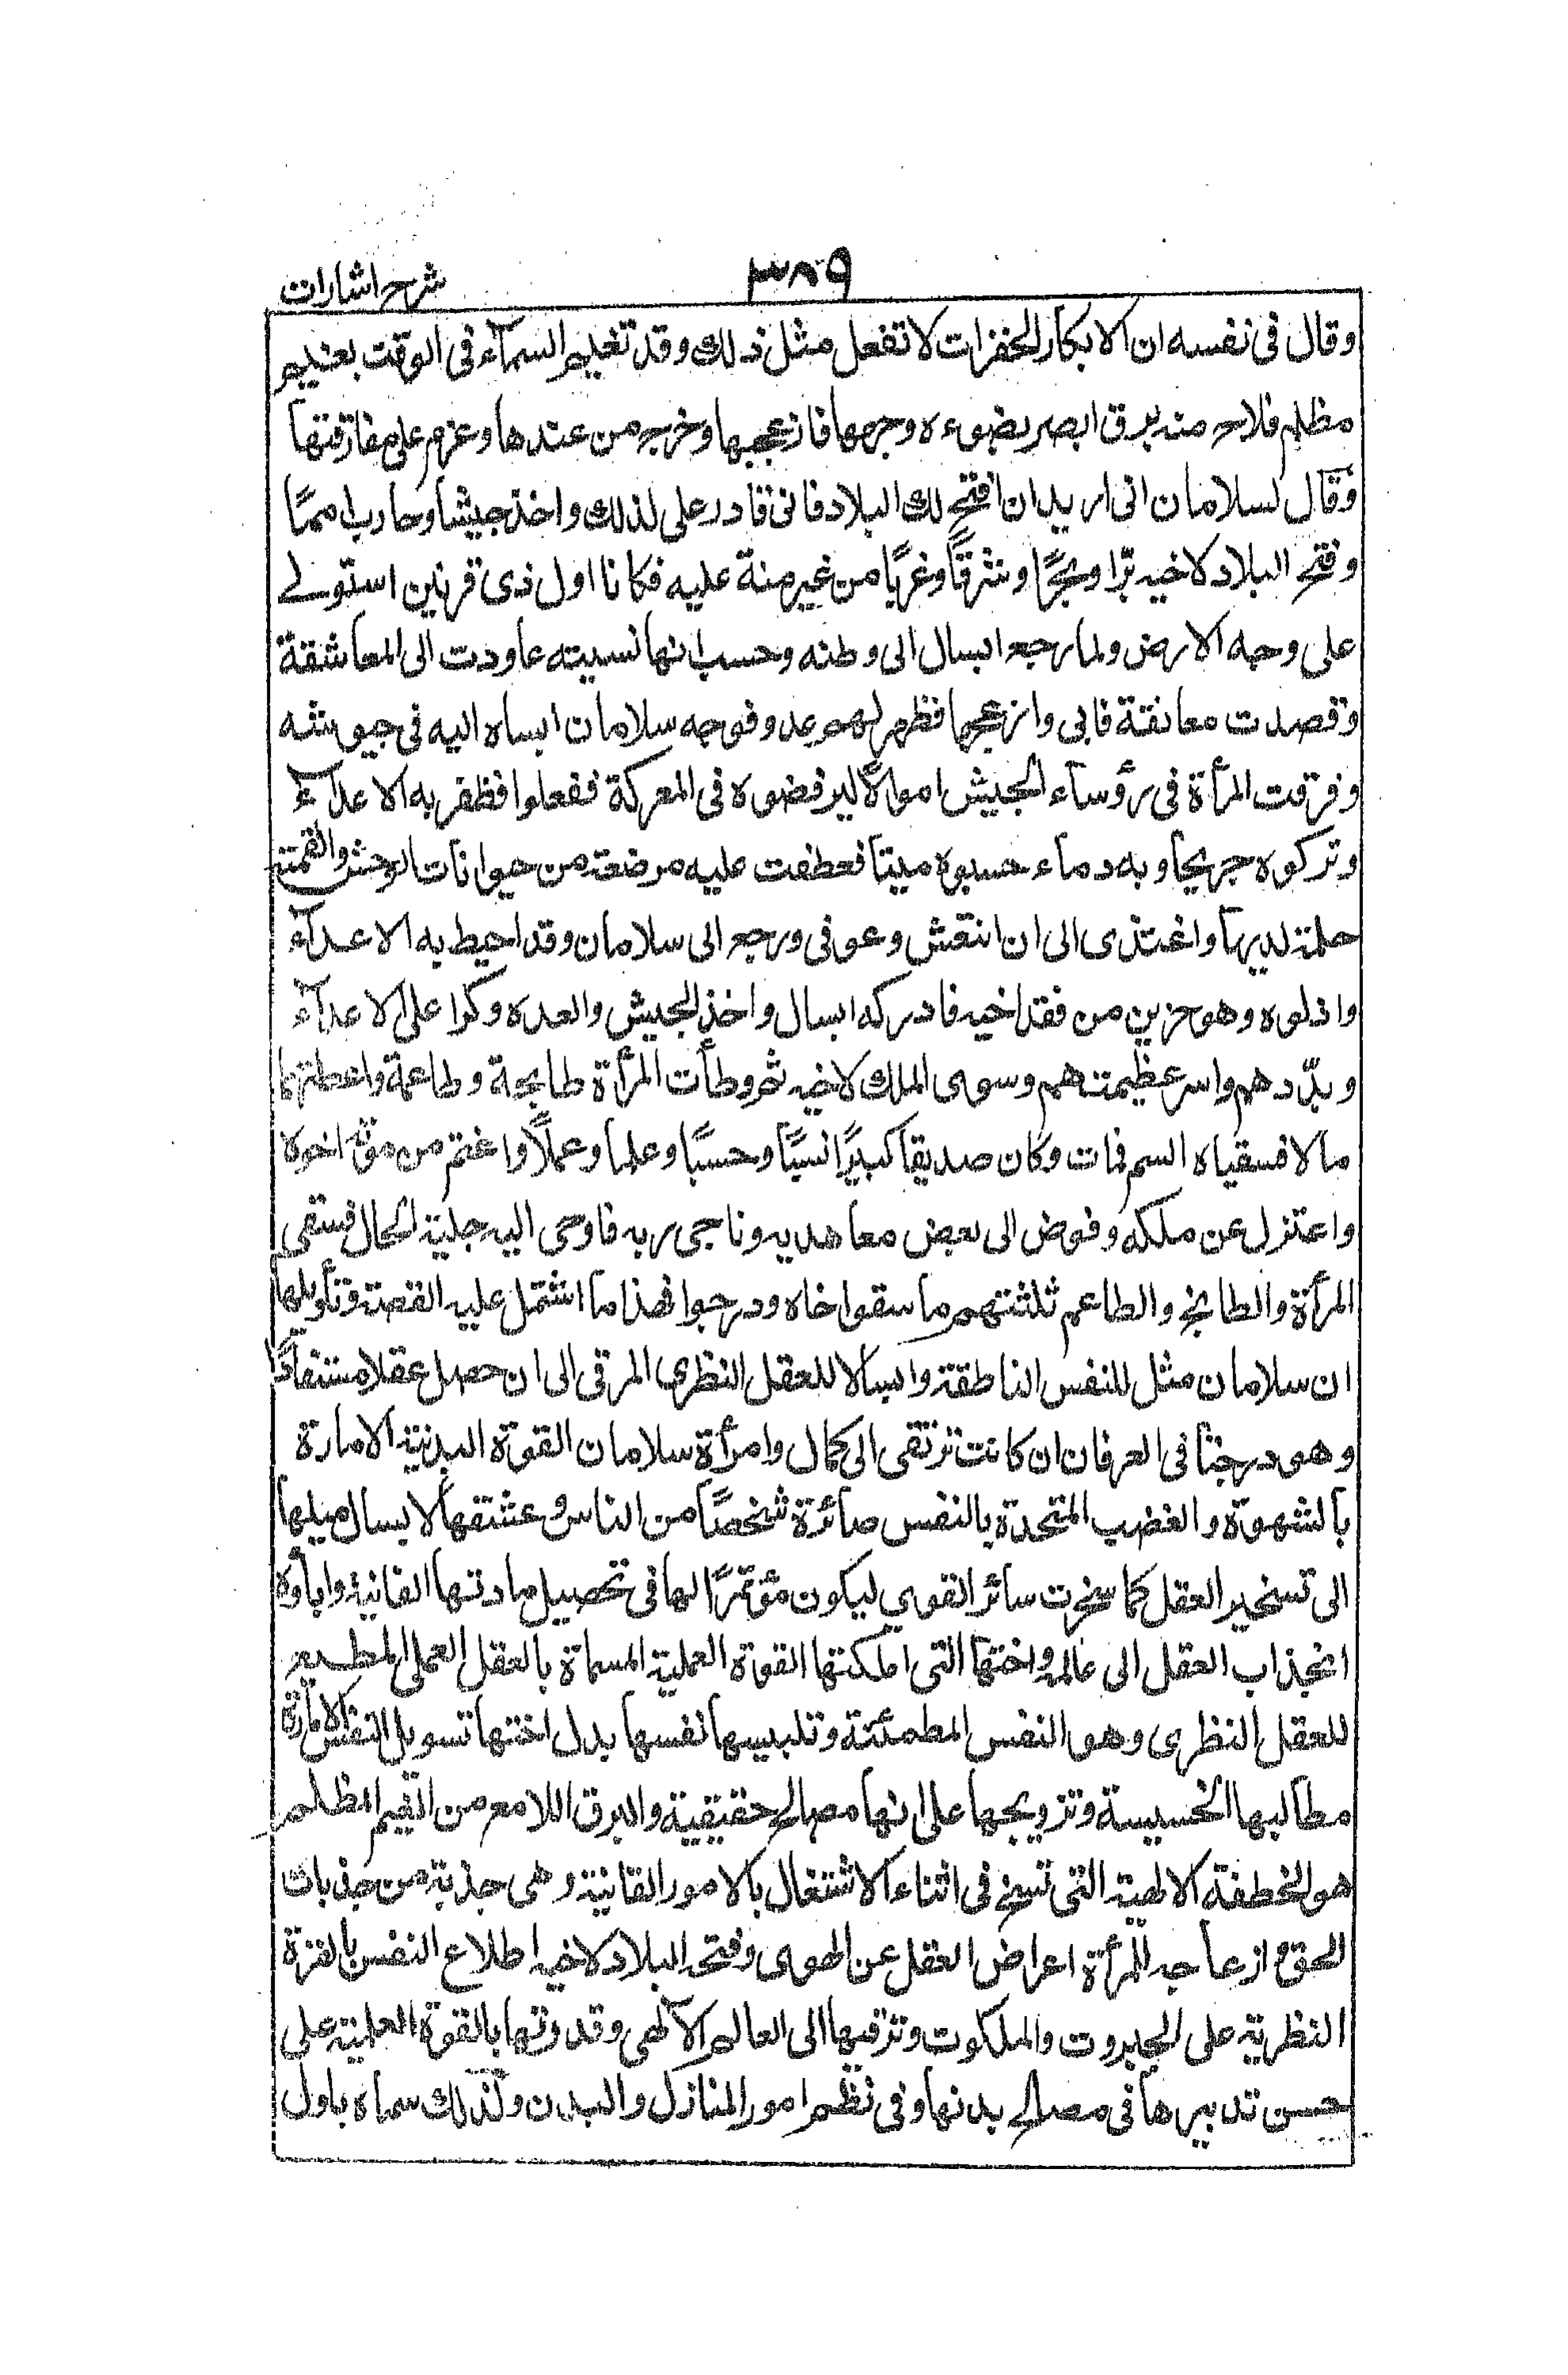 شرح اشارات
٣٨٩
وقال فى نفسه ان الابكار الخفرات لا تفعل مثل ذلك وقد تغيم السمآء فى الوقت بغيم
مظلم فلاح منه برق ابصر بضوءه وجهها فازعجها وخرج من عندها وعزم على مفارقتها
وقال لسلامان انى اريد ان افتح لك البلاد فانى قادر على لذلك واخذ جيشا وحارب امما
وفتح البلاد لاخيه برّا وبحرًا وشرقًا وغربًا من غير منة عليه فكانا اول ذى قرنين استولے
على وجه الارض ولما رجع ابسال الى وطنه وحسب انها نسيته عاودت الى المعاشقة
وقصدت معانقة فابى وازعجها فظهر لهم عدو فوجه سلامان ابساه اليه فى جيوشه
وفرقت المرأة فى رؤسآء الجيش اموالًا ليرفضوه فى المعركة ففعلوا فظفر به الاعدآء
وتركوه جريحا وبه دماء حسبوه ميتا فعطفت عليه مرضعة من حيوانات الوحش والقمته
حلمة لديها واغتذى الى ان انتعش وعوفى ورجع الى سلامان وقد احيط به الاعدآء
واذلوه وهو حزين من فقد اخيه فادركه ابسال واخذ الجيش والعده وكرا على الاعدآء
وبدّدهم واسر عظيمتهم وسوى الملك لاخيه ثم وطأت المرأة طابخة وطاعمة واعطتهما
مالا فسقياه السم فمات وكان صديقا كبيرًا نسبًا وحسبًا وعلما وعملًا واغتم من موته اخوه
واعتزل عن ملكه وفوض الى بعض معاهديه وناجى ربه فاوحى اليه جلية الحال فسقى
المرأة والطابخ والطاعم ثلثتهم ما سقوا خاه ودرجوا فهذا ما اشتمل عليه القصة وتأويلها
ان سلامان مثل للنفس الناطقة وابسالا للعقل النظرى المرقى الى ان حصل عقلا مستفادًا
وهو درجتا فى العرفان ان كانت ترتقى الى كمال وامرأة سلامان القوة البدنية الامارة
بالشهوة والغضب المتحدة بالنفس صائرة شخصًا من الناس وعشقها لابسال ميلها
الى تسخير العقل كما سخرت سائر القوي ليكون مؤتمرًا لها فى تحصيل مادتها الفانية واباؤه
انجذاب العقل الى عالمه واختها التى املكتها القوة العملية المسماة بالعقل العملى المطيع
للعقل النظرى وهو النفس المطمئنة وتلبيسها نفسها بدل اختها تسويل النفس الامارة
مطالبها الخسيسة وتزويجها على انها مصالح حقيقية والبرق اللامع من الغيم المظلم
هو الخطفة الالهية التى تسنح فى اثناء الاشتغال بالامور الفانية وهى جذبة من جذبات
الحق وازعاجه المرأة اعراض العقل عن الهوى وفتحه البلاد لاخيه اطلاع النفس بالقوة
النظرية على الجبروت والملكوت وترقيها الى العالم الآلهى وقدرتها بالقوة العملية على
حسن تدبيرها فى مصالح بدنها وفى نظم امور المنازل والبدن ولذلك سماه باول